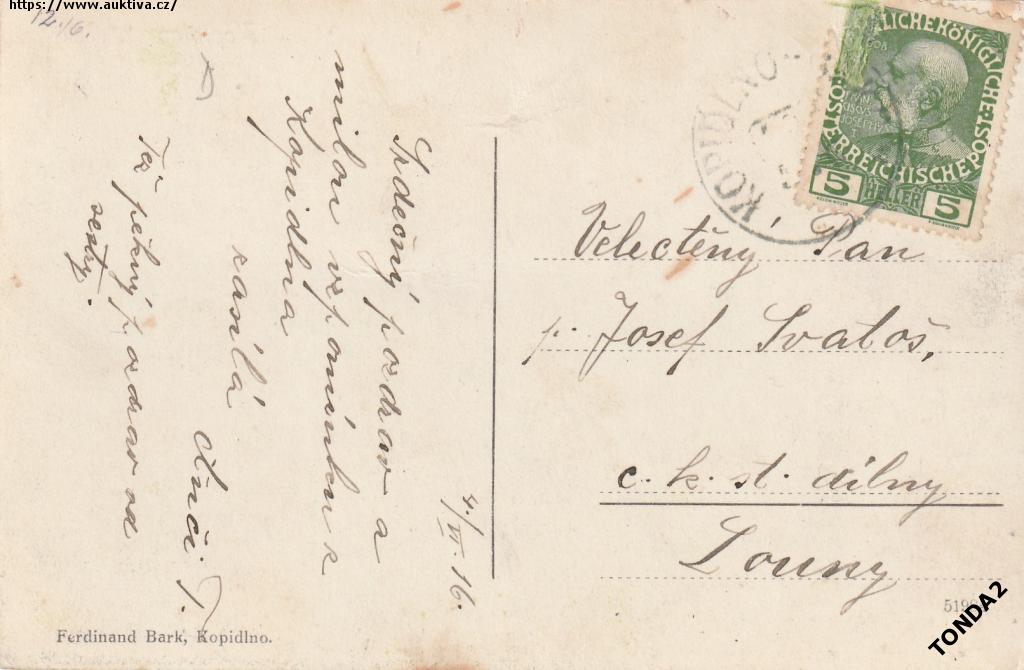 https://www.auktiva.cz/
12./6.
4./VI. 16.
Srdečný pozdrav a
milou vzpomínku z
Kopidlna
zasílá
Anči T.
Též pěkný pozdrav od
sestry.
KOPIDLNO
KAISERLICHE KÖNIGLICHE ÖSTERREICHISCHE POST
5 HELLER 5
Velectěný Pan
p. Josef Svatoš,
c. k. st. dílny
Louny
Ferdinand Bark, Kopidlno.
TONDA2